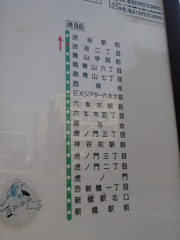 渋88
渋谷駅前
渋谷二丁目
青山学院前
南青山六丁目
南青山七丁目
西麻布
EXシアター六本木前
六本木駅前
六本木五丁目
麻布台
虎ノ門五丁目
神谷町駅前
虎ノ門三丁目
虎ノ門二丁目
虎ノ門
西新橋一丁目
新橋駅北口
新橋駅前